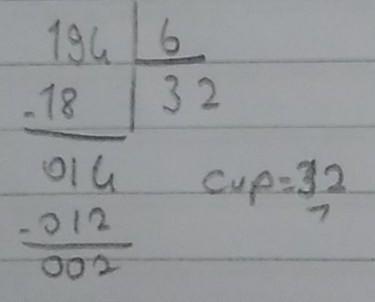 194 6
-18 32
014
cup=32
-012
002